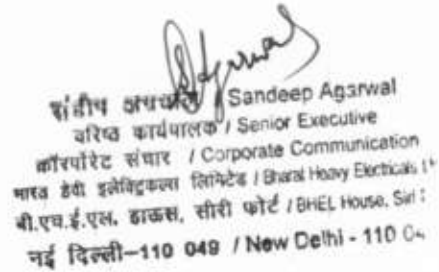 संदीप अग्रवाल / Sandeep Agarwal
वरिष्ठ कार्यपालक / Senior Executive
कॉरपोरेट संचार / Corporate Communication
भारत हेवी इलेक्ट्रिकल्स लिमिटेड / Bharat Heavy Electricals
बी.एच.ई.एल. हाऊस, सीरी फोर्ट / BHEL House, Siri
नई दिल्ली-110 049 / New Delhi - 110